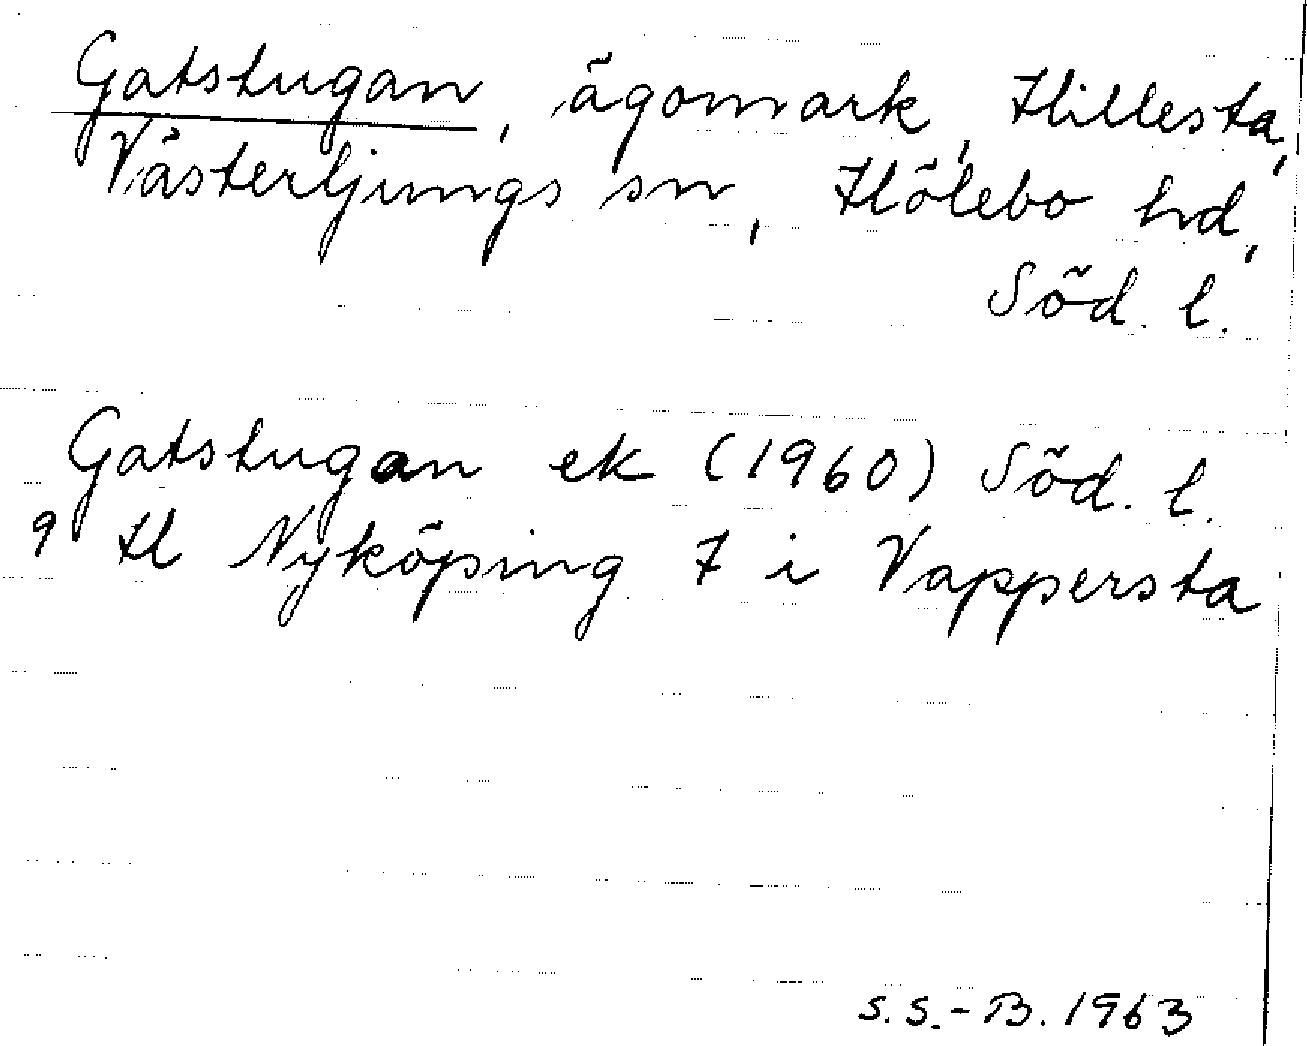 Gatstugan, ägomark, Hillesta,
Västerljungs sn, Hölebo hd,
Söd. l.
Gatstugan ek (1960) Söd. l.
9 H Nyköping 7 i Vappersta
S.S.-B. 1963